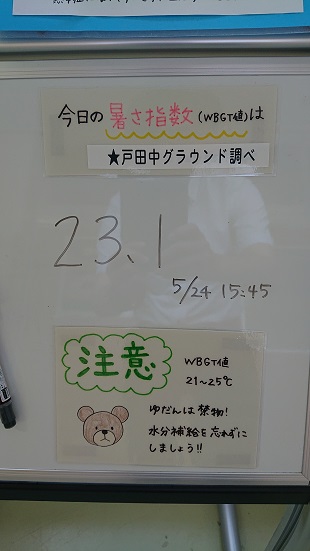 今日の暑さ指数(WBGT値)は
★戸田中グラウンド調べ
23.1
5/24 15:45
注意
WBGT値
21~25℃
ゆだんは禁物!
水分補給を忘れずに
しましょう!!